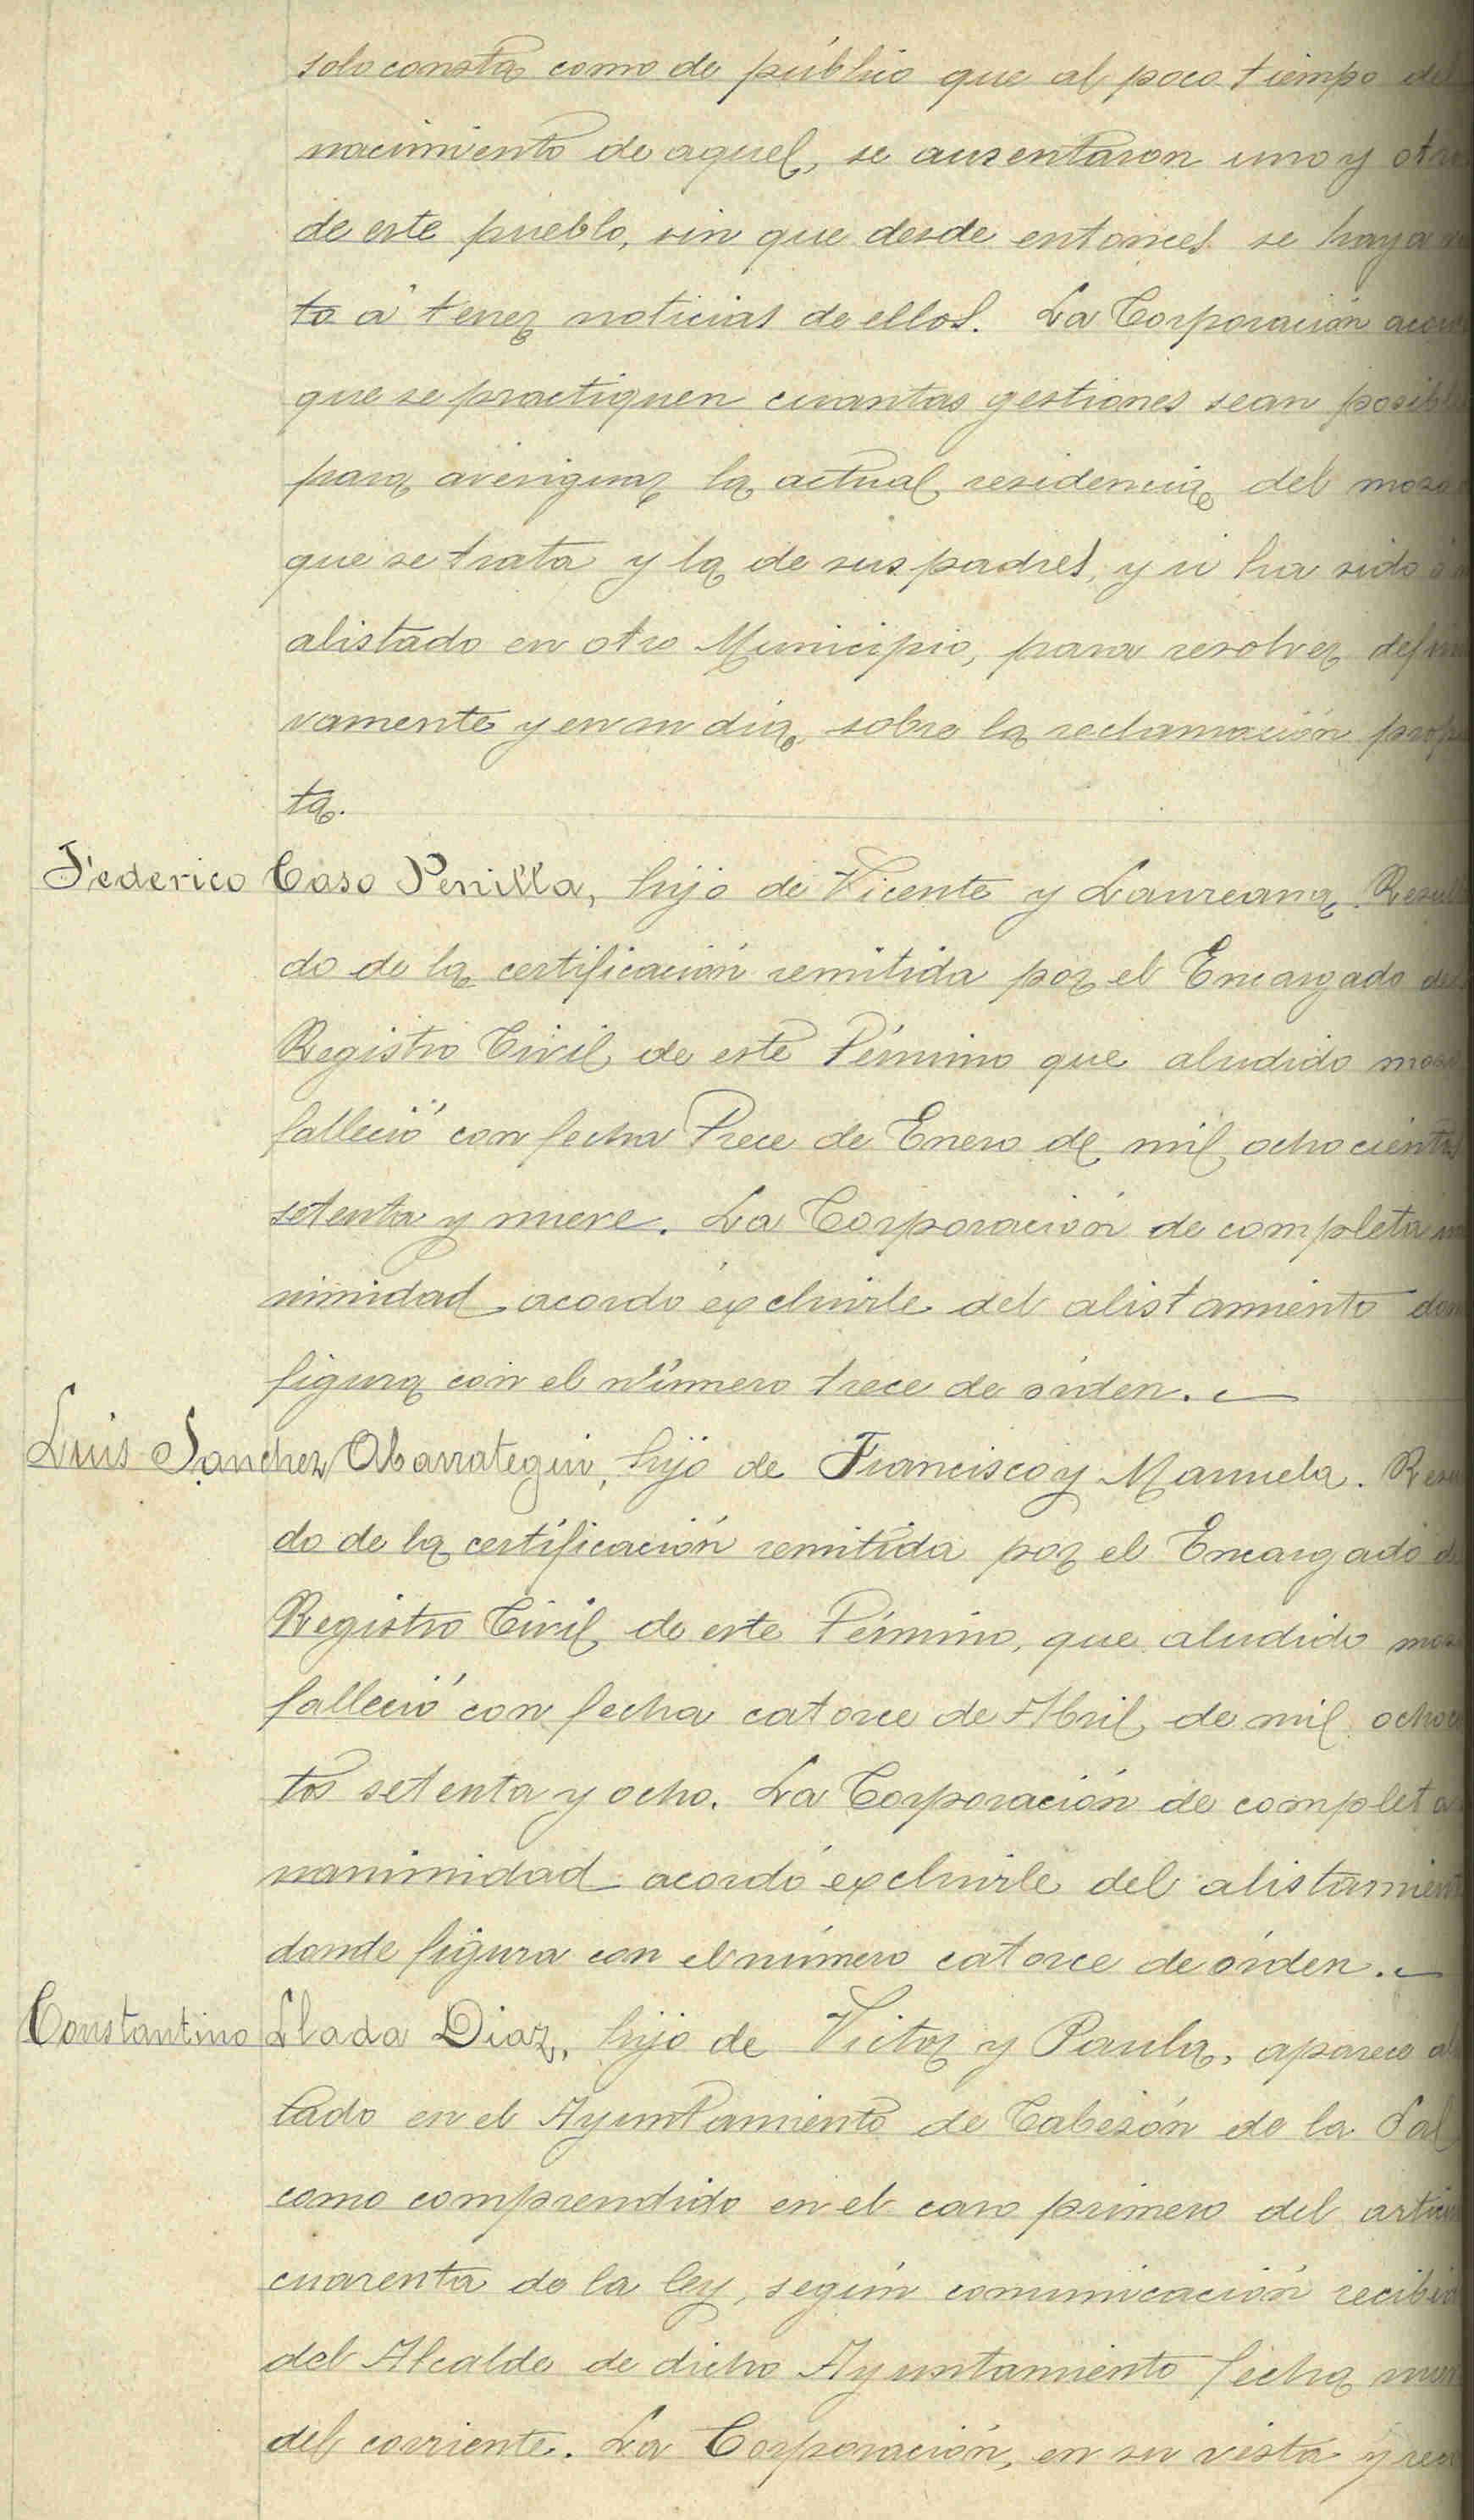 solo consta como de público que al poco tiempo del
nacimiento de aquel, se ausentaron uno y otro
de este pueblo, sin que desde entonces se haya
to á tener noticias de ellos. La Corporación acor
que se practiquen cuantas gestiones sean posibles
para averiguar la actual residencia del mozo
que se trata y la de sus padres, y si ha sido ó
alistado en otro Municipio, para resolver defini
vamente y en su dia, sobre la reclamación prop
ta.
Federico Caso Penilla, hijo de Vicente y Laureana. Resul
do de la certificación remitida por el Encargado del
Registro Civil de este Término que aludido mozo
falleció con fecha Trece de Enero de mil ochocientos
setenta y nueve. La Corporación de completa
nimidad acordó excluirle del alistamiento don
figura con el número trece de órden.
Luis Sanchez Abarrategui, hijo de Francisco y Manuela. Resu
do de la certificación remitida por el Encargado
Registro Civil de este Término, que aludido mozo
falleció con fecha catorce de Abril de mil ochoci
tos setenta y ocho. La Corporación de completa
nanimidad acordó excluirle del alistamient
donde figura con el número catorce de órden.
Constantino Llada Diaz, hijo de Victor y Paula, aparece al
tado en el Ayuntamiento de Cabezón de la Sal
como comprendido en el caso primero del artícu
cuarenta de la ley, según comunicación recibid
del Alcalde de dicho Ayuntamiento fecha
del corriente. La Corporación, en su vista y